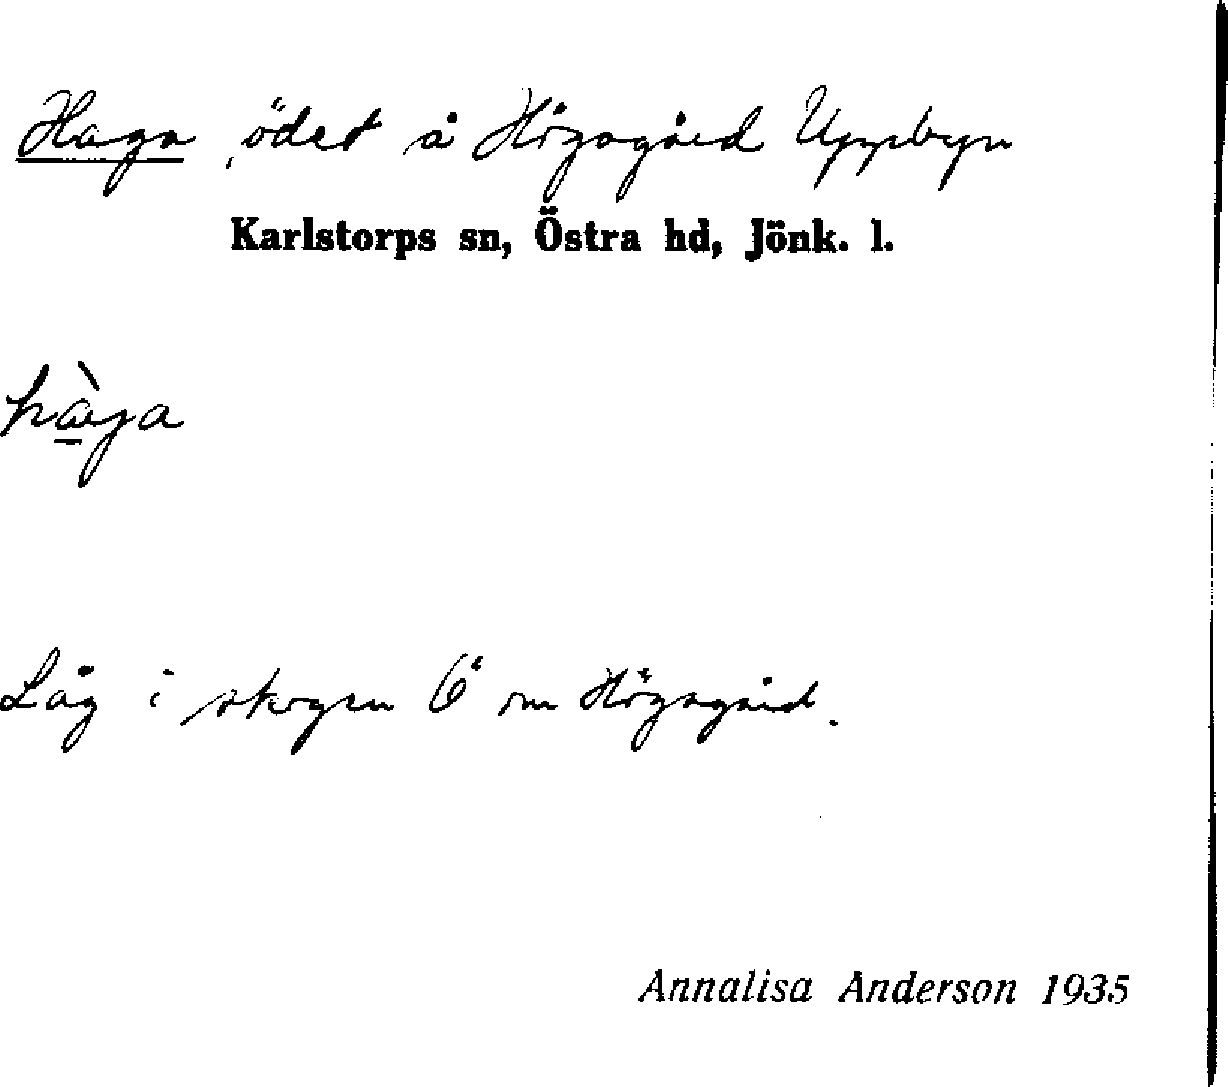 Haga, ödet å Högagärd Uppbyn
Karlstorps sn, Östra hd, Jönk. l.
hàga
Låg i skogen Ö om Högagärd.
Annalisa Anderson 1935